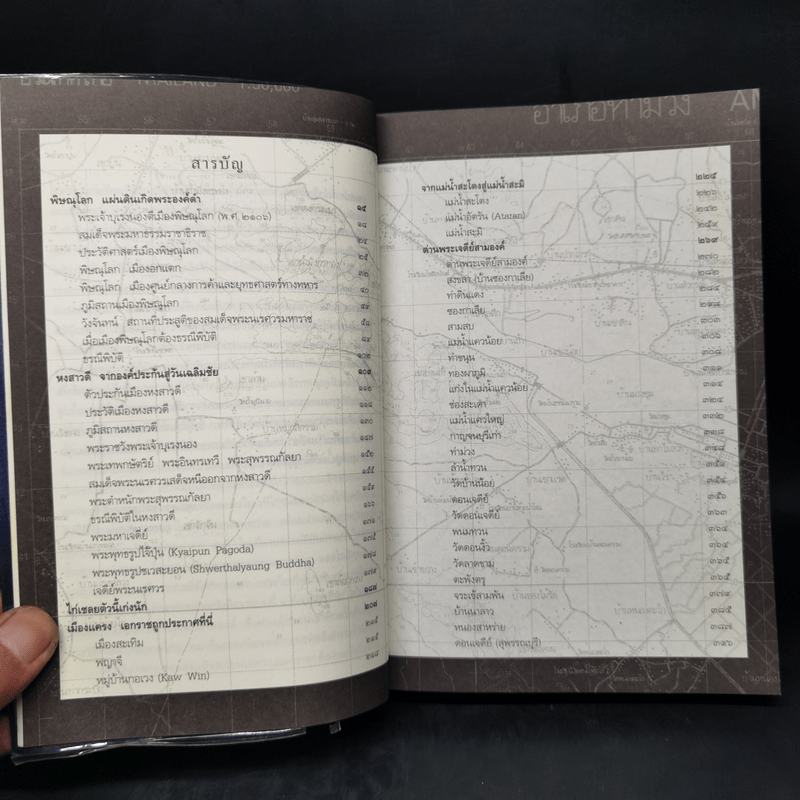 THAILAND 1:50,000
สารบัญ
พิษณุโลก แผ่นดินเกิดพระองค์ดำ ๑๕
พระเจ้าบุเรงนองตีเมืองพิษณุโลก (พ.ศ.๒๑๐๖) ๑๘
สมเด็จพระมหาธรรมราชาธิราช ๒๔
ประวัติศาสตร์เมืองพิษณุโลก ๒๘
พิษณุโลก เมืองอกแตก ๓๒
พิษณุโลก เมืองศูนย์กลางการค้าและยุทธศาสตร์ทางทหาร ๔๐
ภูมิสถานเมืองพิษณุโลก ๔๔
วังจันทน์ สถานที่ประสูติของสมเด็จพระนเรศวรมหาราช ๕๘
เมื่อเมืองพิษณุโลกต้องธรณีพิบัติ ๘๔
ธรณีพิบัติ ๑๐๒
หงสาวดี จากองค์ประกันสู่วันเฉลิมชัย ๑๐๙
ตัวประกันเมืองหงสาวดี ๑๑๒
ประวัติเมืองหงสาวดี ๑๑๘
ภูมิสถานหงสาวดี ๑๓๐
พระราชวังพระเจ้าบุเรงนอง ๑๔๗
พระเทพกษัตริย์ พระอินทรเทวี พระสุพรรณกัลยา ๑๕๒
สมเด็จพระนเรศวรเสด็จหนีออกจากหงสาวดี ๑๕๕
พระตำหนักพระสุพรรณกัลยา ๑๖๖
ธรณีพิบัติในหงสาวดี ๑๗๑
พระมหาเจดีย์ ๑๗๕
พระพุทธรูปไจ๊ปุ่น (Kyaipun Pagoda) ๑๗๘
พระพุทธรูปชเวสะยอน (Shwerthalyaung Buddha) ๑๘๓
เจดีย์พระนเรศวร ๑๘๗
ไก่เชลยตัวนี้เก่งนัก ๒๐๘
เมืองแครง เอกราชถูกประกาศที่นี่ ๒๑๕
เมืองสะเทิม ๒๑๕
พญาจี ๒๑๘
หมู่บ้านกอเวง (Kaw Win)
อำเภอท่าม่วง
จากแม่น้ำสะโตงสู่แม่น้ำสะมิ ๒๒๕
แม่น้ำสะโตง ๒๒๖
แม่น้ำอัตรัน (Ataran) ๒๔๒
แม่น้ำสะมิ ๒๕๙
ด่านพระเจดีย์สามองค์ ๒๖๙
ด่านพระเจดีย์สามองค์ ๒๗๐
สงขลา (บ้านซองกาเลีย) ๒๘๒
ท่าดินแดง ๒๘๔
ซองกาเลีย ๒๙๘
สามสบ ๓๐๓
แม่น้ำแควน้อย ๓๐๖
ท่าขนุน ๓๐๘
ทองผาภูมิ ๓๑๑
แก่งในแม่น้ำแควน้อย ๓๑๔
ช่องสะเดา ๓๒๒
แม่น้ำแควใหญ่ ๓๓๒
กาญจนบุรีเก่า ๓๓๘
ท่าม่วง ๓๔๘
ลำน้ำทวน ๓๕๔
วัดบ้านน้อย ๓๕๖
ดอนเจดีย์ ๓๕๖
วัดดอนเจดีย์ ๓๖๓
พนมทวน ๓๖๔
วัดดอนงิ้ว ๓๖๔
วัดลาดขาม ๓๖๕
ตะพังตรุ ๓๖๕
จระเข้สามพัน ๓๗๙
บ้านนาลาว ๓๘๕
หนองสาหร่าย ๓๘๗
ดอนเจดีย์ (สุพรรณบุรี) ๓๙๖